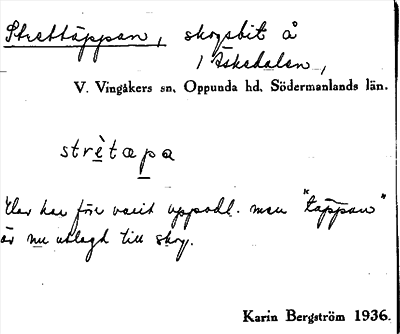 Strettäppan, skogsbit å
/ Äskedalen,
V. Vingåkers sn, Oppunda hd, Södermanlands län.
strètæpa
Har har före varit uppodl. men "täppan"
är nu utlagd till skog.
Karin Bergström 1936.